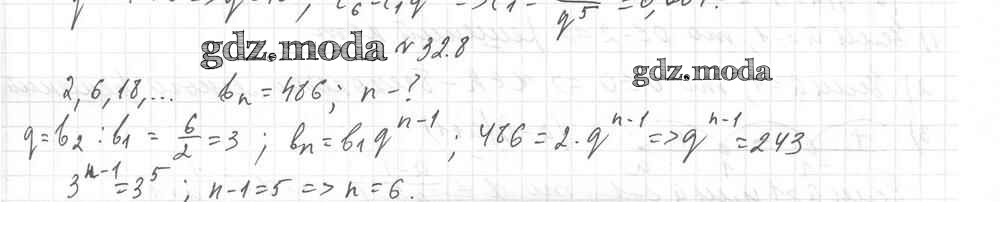 gdz.moda № 32.8
gdz.moda
2, 6, 18, ... bₙ = 486; n - ?
q = b₂ : b₁ = 6/2 = 3; bₙ = b₁qⁿ⁻¹; 486 = 2·qⁿ⁻¹ => qⁿ⁻¹ = 243
3ⁿ⁻¹ = 3⁵; n-1 = 5 => n = 6.